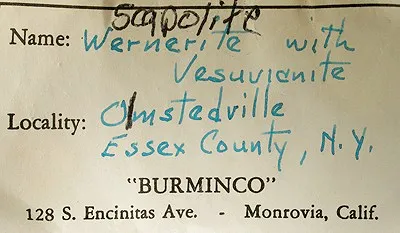 scapolite
Name: Wernerite with
Vesuvianite
Locality: Olmstedville
Essex County, N.Y.
"BURMINCO"
128 S. Encinitas Ave. - Monrovia, Calif.